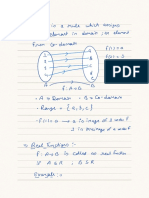 is a rule which assigns
element in domain, an element
from Co-domain
f(1) = a
f: A → B
- A = Domain - B = Co-domain
- Range = { a, b, c }
- f(1) = a → a is image of 1 under f
1 is pre image of a under f
→ Real function :-
f: A → B is called as real function
if A ⊆ R ; B ⊆ R
Example :-